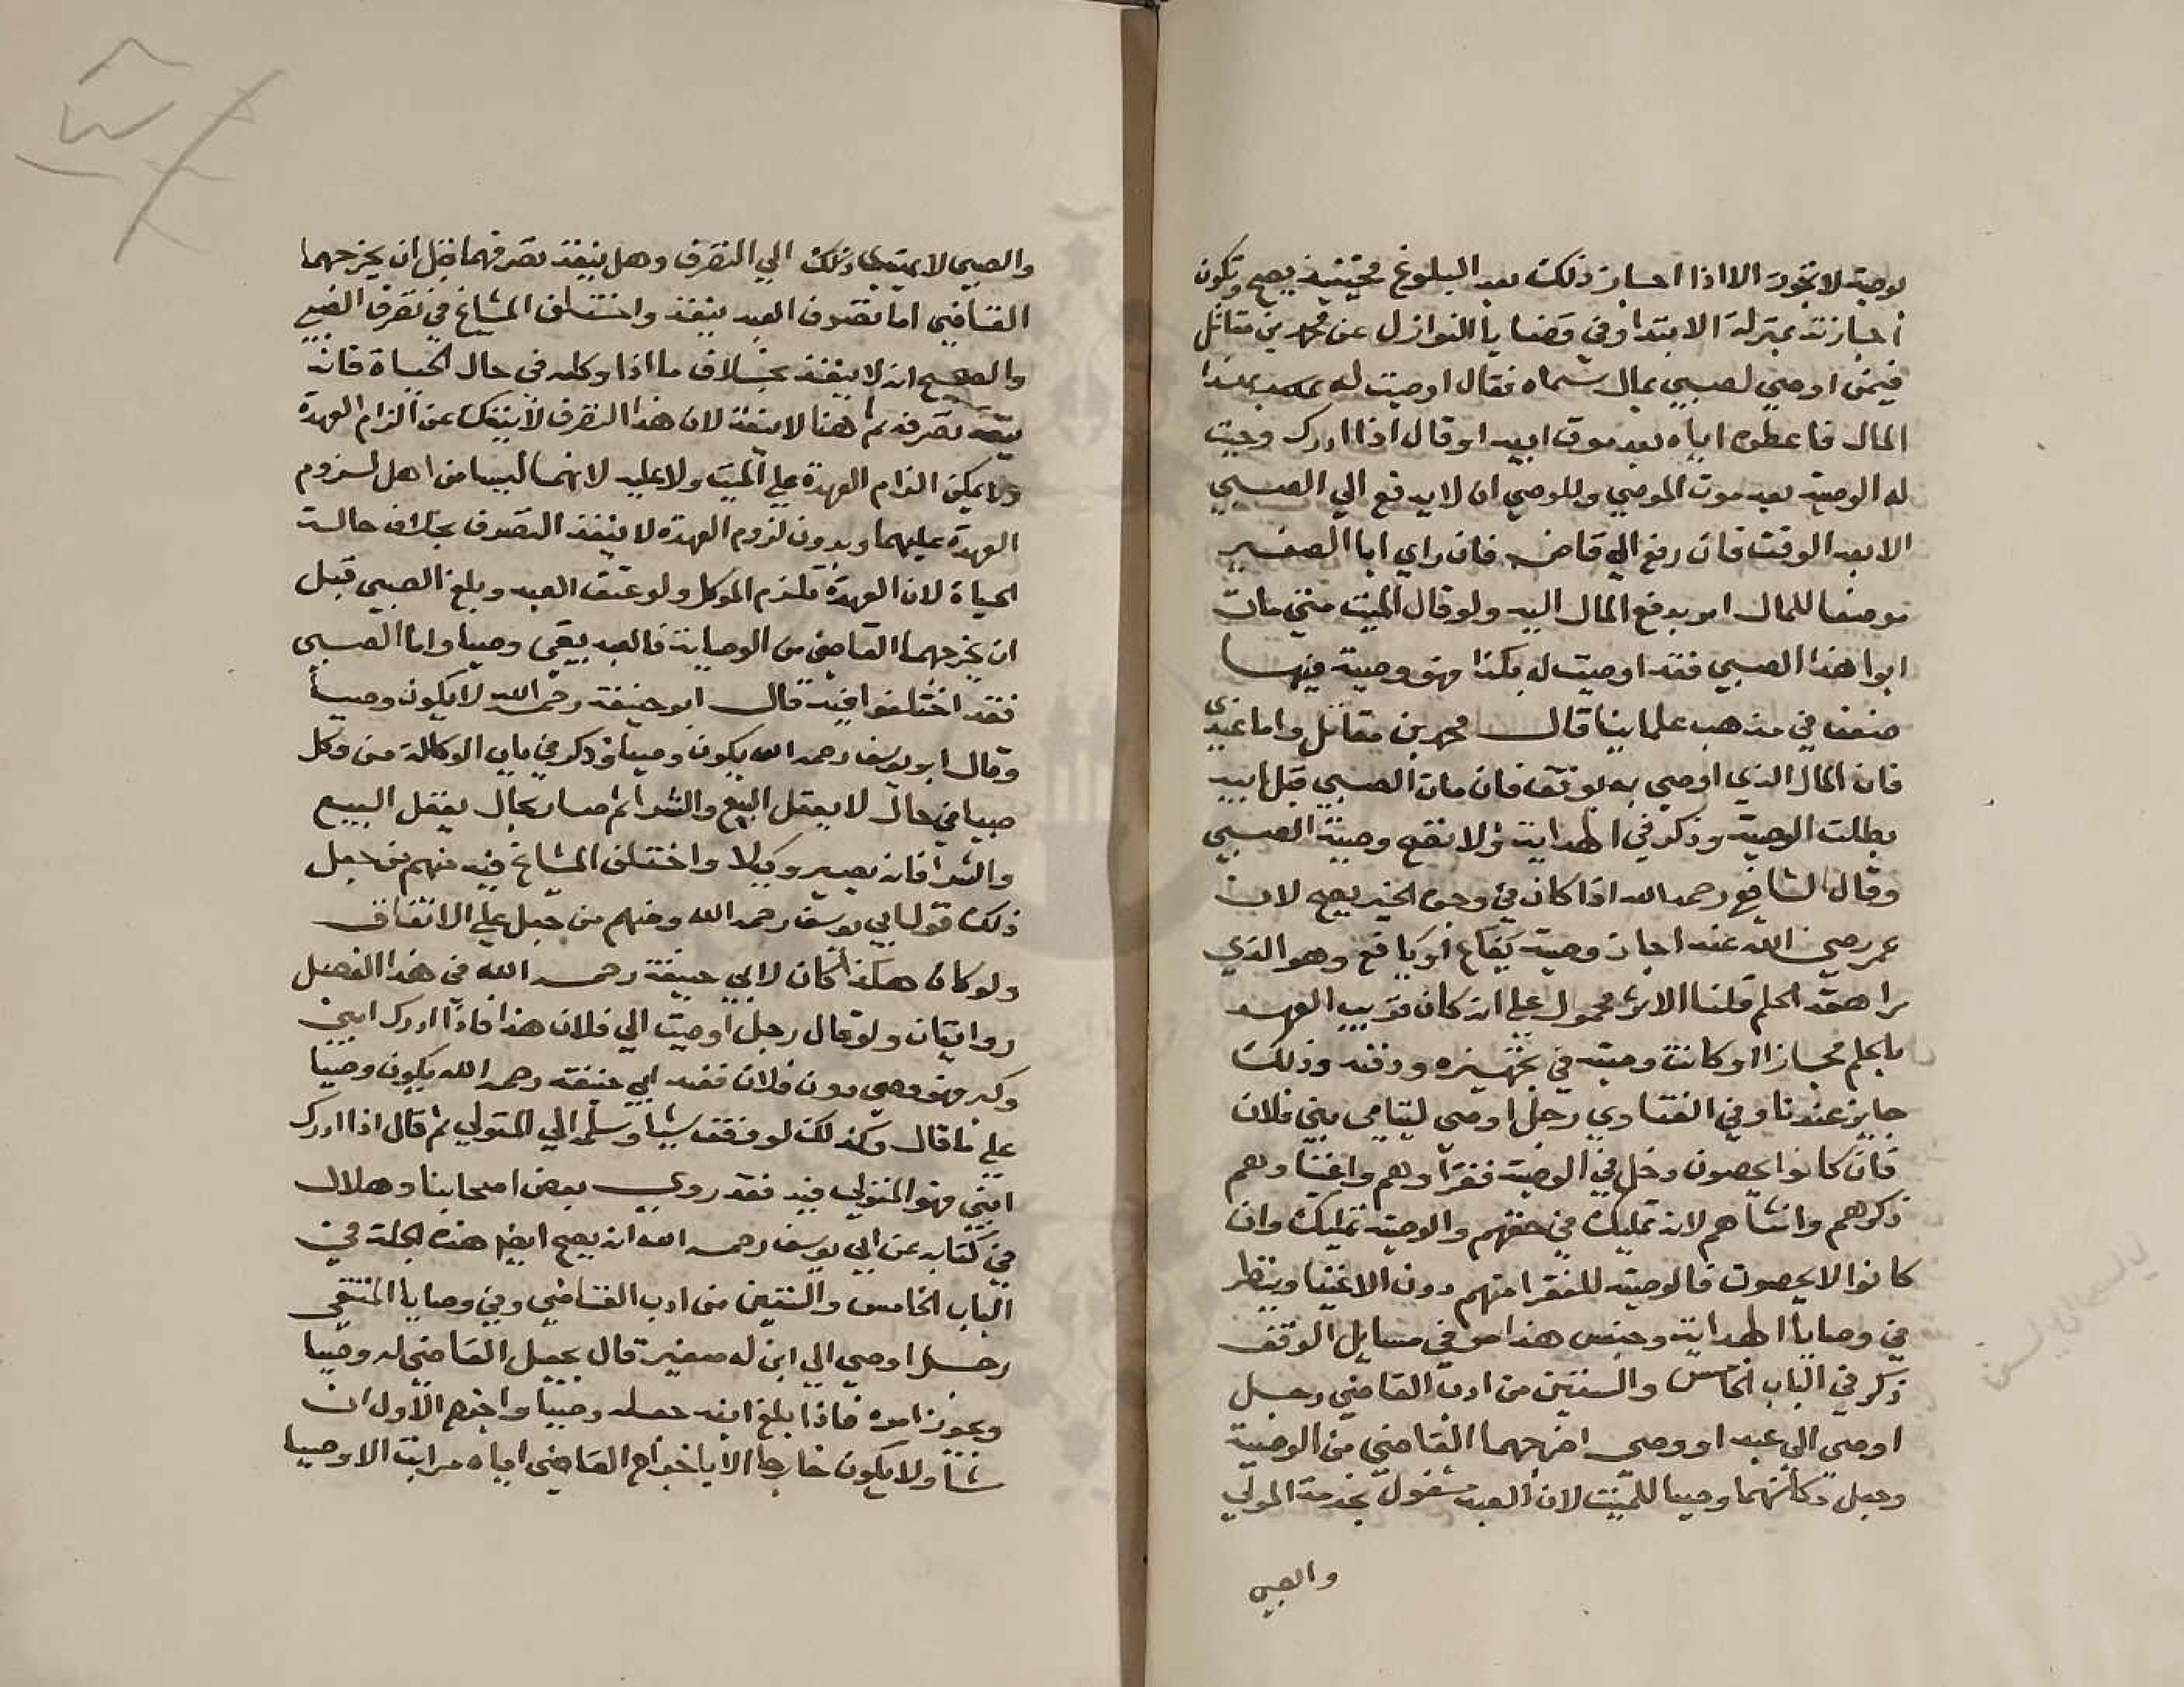 بوصية لا تجوز الا اذا اجاز ذلك بعد البلوغ فحينئذ يصح وتكون
اجازته بمنزلة الابتدا وفي وصايا النوازل عن محمد بن مقاتل
فيمن اوصي لصبي بمال سماه فقال اوصيت له بهذا
المال فاعطوه اياه بعد موت ابيه او قال اذا ادرك وجبت
له الوصية بعد موت الموصي وللوصي ان لا يدفع الي الصبي
الا بعد الوقت فان رفع الي قاض فان راي ابا الصغير
موضعا للمال امر بدفع المال اليه ولو قال الميت متي مات
ابوا هذا الصبي فقد اوصيت له بكذا فهو وصية فيها
ضعف في مذهب علماينا قال محمد بن مقاتل واما عندي
فان المال الذي اوصي به يوقف فان مات الصبي قبل ابيه
بطلت الوصية وذكر في الهداية ولا تصح وصية الصبي
وقال الشافعي رحمه الله اذا كان في وجوه الخير يصح لان
عمر رضي الله عنه اجاز وصية يفاع او يافع وهو الذي
راهق الحلم قلنا الاثر محمول علي انه كان قريب العهد
بالحلم مجازا او كانت وصيته في تجهيزه ودفنه وذلك
جايز عندنا وفي الفتاوي رجل اوصي ليتامي بني فلان
فان كانوا يحصون دخل في الوصية فقراوهم واغنياوهم
ذكرهم وانثاهم لانه تمليك في حقهم والوصية تمليك وان
كانوا لا يحصون فالوصية للفقرا منهم دون الاغنيا وينظر
في وصايا الهداية وجنس هذا مر في مسايل الوقف
ذكر في الباب الخامس والستين من ادب القاضي رجل
اوصي الي عبد او وصي اخرجهما القاضي من الوصية
وجعل مكانهما وصيا للميت لان العبد مشغول بخدمة المولي
والصبي
والصبي لا يهتدي الي التصرف وهل ينفذ تصرفهما قبل ان يخرجهما
القاضي اما تصرف العبد ينفذ واختلف المشايخ في تصرف الصبي
والصحيح انه لا ينفذ بخلاف ما اذا وكله في حال الحياة فانه
تصرفه ثم هنا لا ينفذ لان هذا التصرف لا ينفك عن الزام العهدة
ولا يمكن الزام العهدة علي الميت ولا عليه لانهما ليسا من اهل لزوم
العهدة عليهما وبدون لزوم العهدة لا ينفذ التصرف بخلاف حالة
الحياة لان العهدة تلزم الموكل ولو عتق العبد وبلغ الصبي قبل
ان يخرجهما القاضي من الوصاية فالعبد يبقي وصيا واما الصبي
فقد اختلفوا فيه قال ابو حنيفة رحمه الله لا يكون وصيا
وقال ابو يوسف رحمه الله يكون وصيا وذكر في باب الوكالة من وكل
صبيا في حال لا يعقل البيع والشرا ثم صار بحال يعقل البيع
والشرا فانه يصير وكيلا واختلف المشايخ فيه منهم من جعل
ذلك قول ابي يوسف رحمه الله ومنهم من جعل علي الاتفاق
ولو كان هكذا كان لابي حنيفة رحمه الله في هذا الفصل
روايتان ولو قال رجل اوصيت الي فلان هذا فاذا ادرك ابني
وكبر فهو وصي دون فلان فعند ابي حنيفة رحمه الله يكون وصيا
علي ما قال وكذلك لو وقف شيا وسلم الي المتولي ثم قال اذا ادرك
ابني فهو المتولي فيه فقد روي بعض اصحابنا وهلال
في كتابه عن ابي يوسف رحمه الله انه يصح ايضا هذه الجملة في
الباب الخامس والستين من ادب القاضي وفي وصايا المنتقي
رجل اوصي الي ابن له صغير قال يجعل القاضي له وصيا
ويجوز امره فاذا بلغ ابنه جعله وصيا واخرج الاول ان
شا ولا يكون خارجا الا باخراج القاضي اياه مراتب الاوصيا